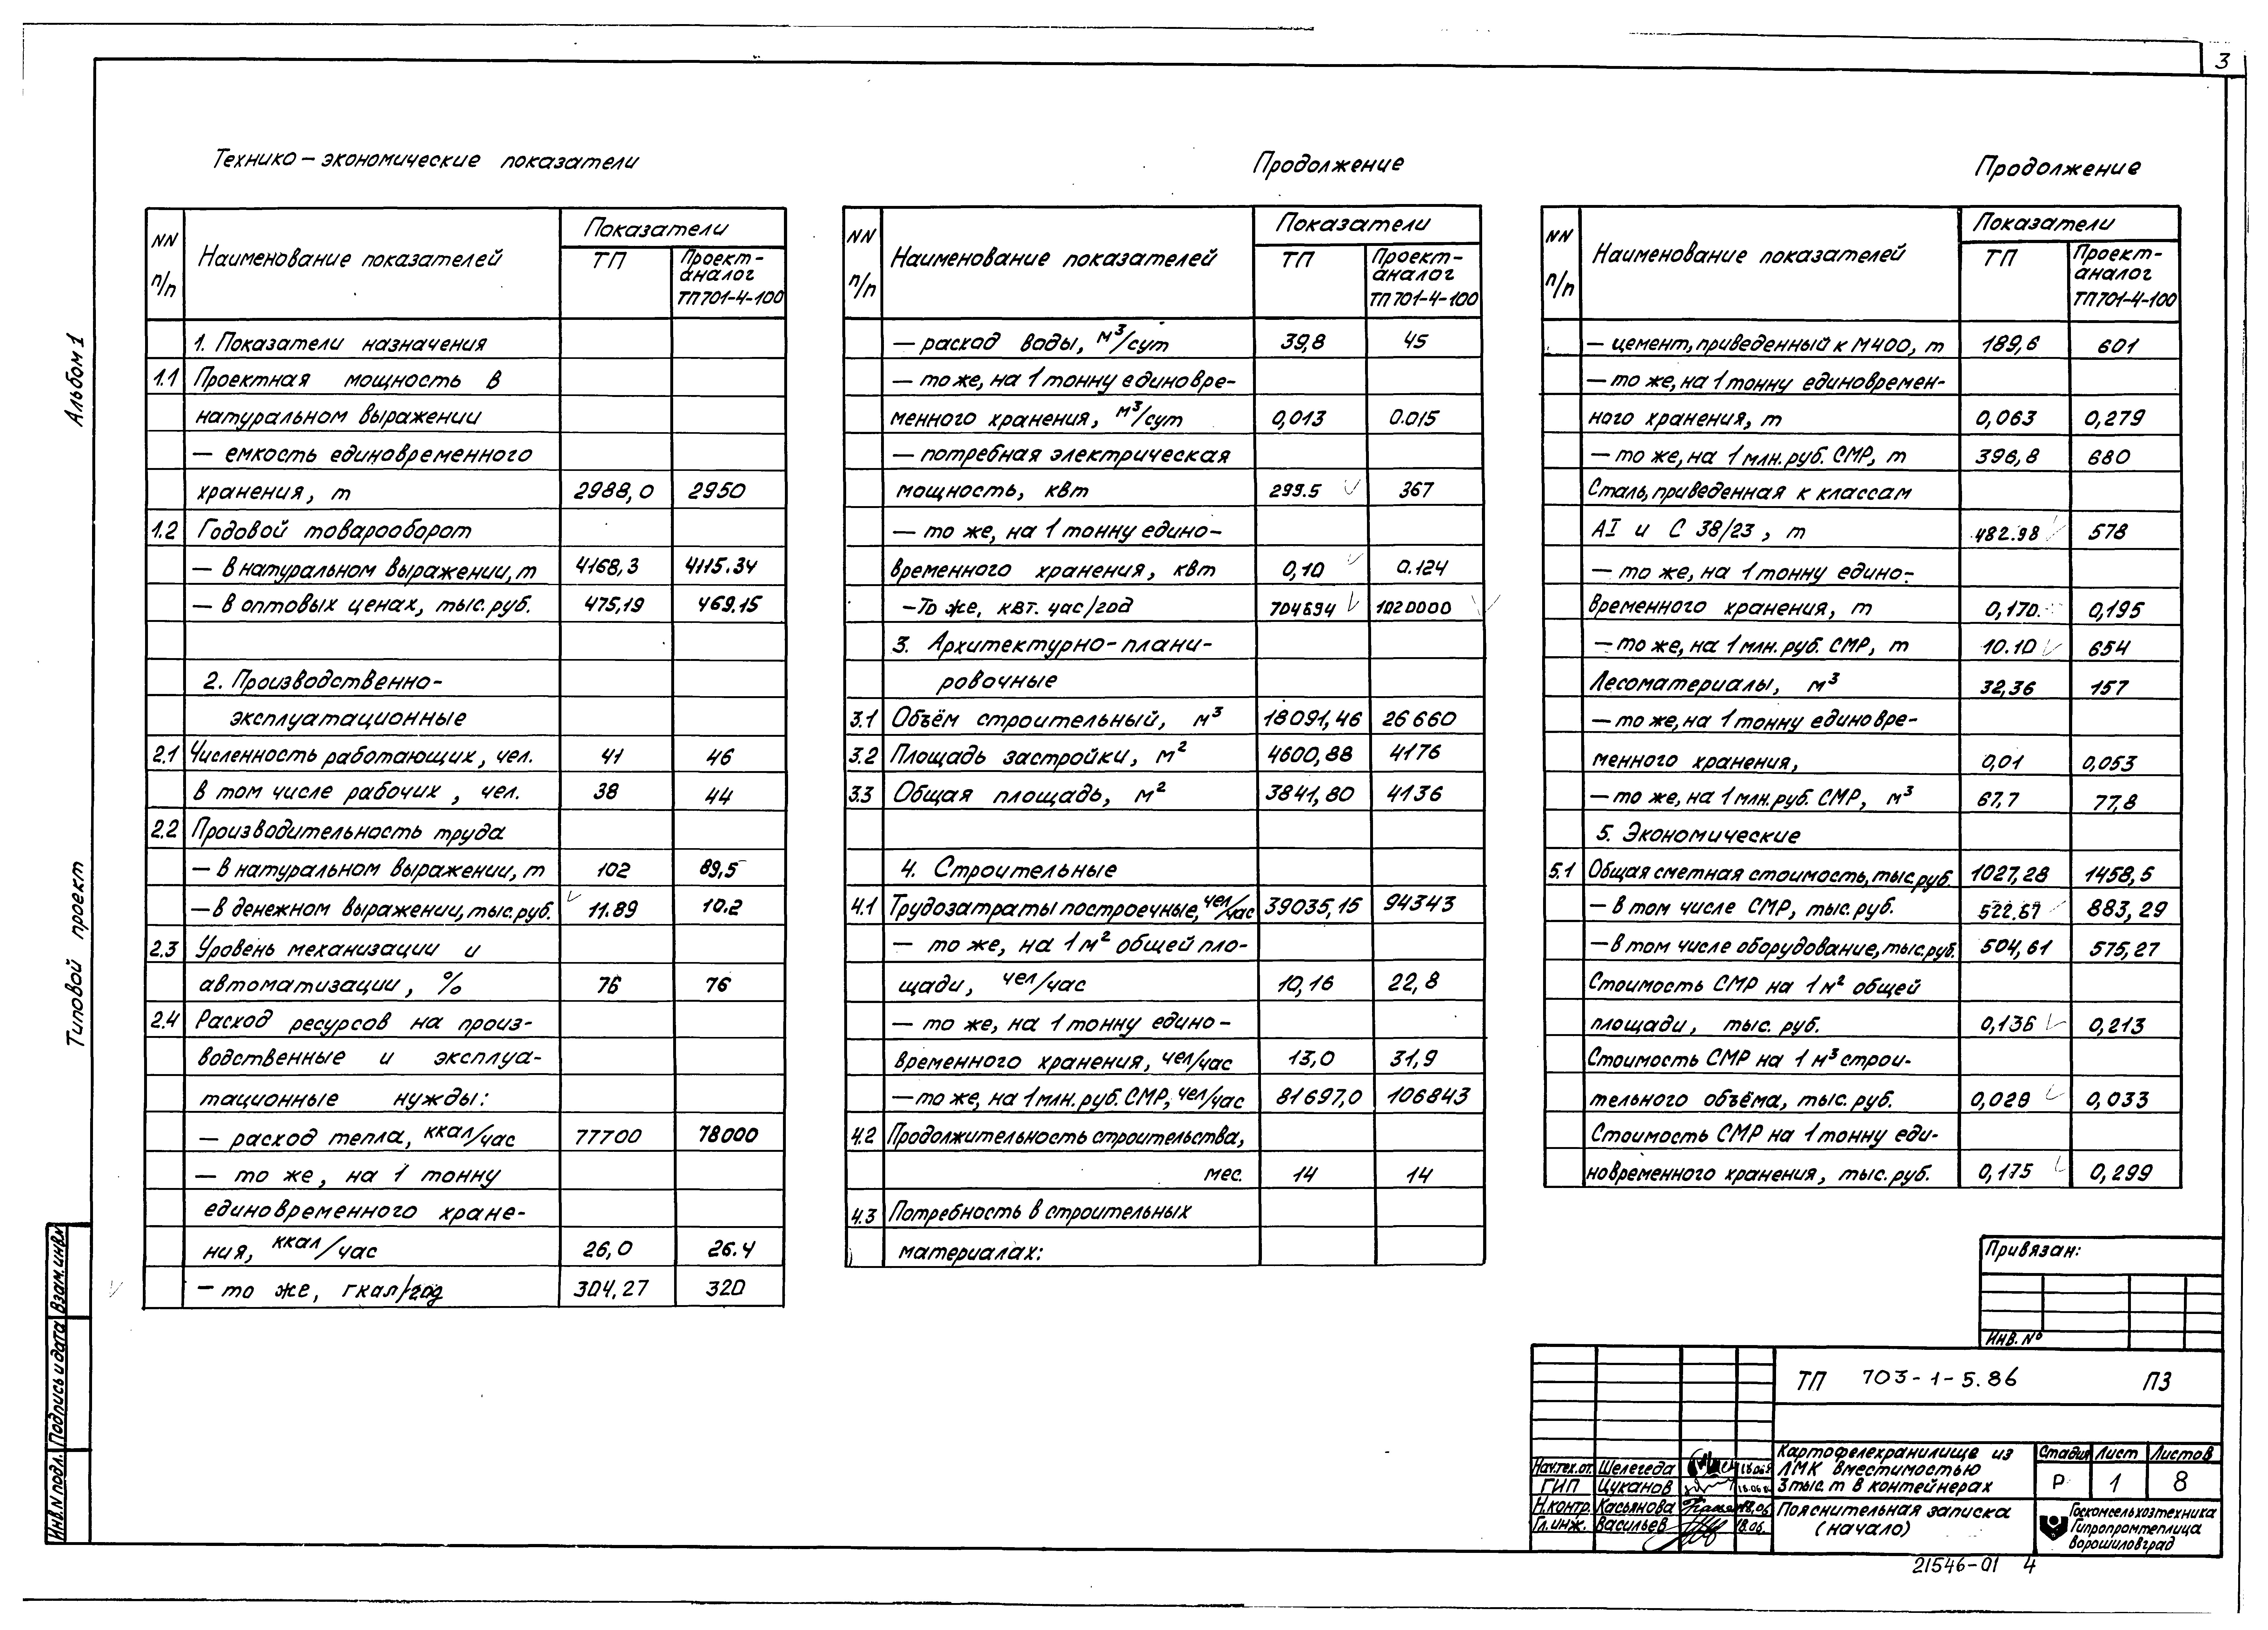 3
Технико – экономические показатели
NN п/п Наименование показателей Показатели
ТП Проект-аналог ТП701-4-100
1. Показатели назначения
1.1 Проектная мощность в
натуральном выражении
— емкость единовременного
хранения, т 2988,0 2950
1.2 Годовой товарооборот
— в натуральном выражении, т 4168,3 4115.34
— в оптовых ценах, тыс. руб. 475,19 469.15
2. Производственно-
эксплуатационные
2.1 Численность работающих, чел. 41 46
в том числе рабочих, чел. 38 44
2.2 Производительность труда
— в натуральном выражении, т 102 89,5
— в денежном выражении, тыс. руб. 11.89 10.2
2.3 Уровень механизации и
автоматизации, % 76 76
2.4 Расход ресурсов на произ-
водственные и эксплуа-
тационные нужды:
— расход тепла, ккал/час 77700 78000
— то же, на 1 тонну
единовременного хране-
ния, ккал/час 26,0 26.4
— то же, гкал/год 304,27 320
Продолжение
NN п/п Наименование показателей Показатели
ТП Проект-аналог ТП701-4-100
— расход воды, м³/сут 39,8 45
— то же, на 1 тонну единовре-
менного хранения, м³/сут 0,013 0.015
— потребная электрическая
мощность, квт 299.5 367
— то же, на 1 тонну едино-
временного хранения, квт 0,10 0.124
— То же, квт. час/год 704694 1020000
3. Архитектурно-плани-
ровочные
3.1 Объём строительный, м³ 18091,46 26660
3.2 Площадь застройки, м² 4600,88 4176
3.3 Общая площадь, м² 3841,80 4136
4. Строительные
4.1 Трудозатраты построечные, чел/час 39035,15 94343
— то же, на 1 м² общей пло-
щади, чел/час 10,16 22,8
— то же, на 1 тонну едино-
временного хранения, чел/час 13,0 31,9
— то же, на 1 млн. руб. СМР, чел/час 81697,0 106843
4.2 Продолжительность строительства,
мес. 14 14
4.3 Потребность в строительных
материалах:
Продолжение
NN п/п Наименование показателей Показатели
ТП Проект-аналог ТП701-4-100
— цемент, приведенный к М400, т 189,6 601
— то же, на 1 тонну единовремен-
ного хранения, т 0,063 0,279
— то же, на 1 млн. руб. СМР, т 396,8 680
Сталь, приведенная к классам
АI и С 38/23, т 482.98 578
— то же, на 1 тонну едино-
временного хранения, т 0,170 0,195
— то же, на 1 млн. руб. СМР, т 10.10 654
Лесоматериалы, м³ 32,36 157
— то же, на 1 тонну единовре-
менного хранения, 0,01 0,053
— то же, на 1 млн. руб. СМР, м³ 67,7 77,8
5. Экономические
5.1 Общая сметная стоимость, тыс. руб. 1027,28 1458,5
— в том числе СМР, тыс. руб. 522.67 883,29
— в том числе оборудование, тыс. руб. 504,61 575,27
Стоимость СМР на 1 м² общей
площади, тыс. руб. 0,136 0,213
Стоимость СМР на 1 м³ строи-
тельного объёма, тыс. руб. 0,028 0,033
Стоимость СМР на 1 тонну еди-
новременного хранения, тыс. руб. 0,175 0,299
Альбом 1
Типовой проект
Взам. инв. N
Подпись и дата
Инв. N подл.
Привязан:
Инв. №
ТП 703-1-5.86 ПЗ
Нач. тех. от. Шелегеда
ГИП Цуканов
Н. контр. Касьянова 18.06
Гл. инж. Васильев 18.06.
Картофелехранилище из
ЛМК вместимостью
3 тыс. т в контейнерах
Стадия Лист Листов
Р 1 8
Пояснительная записка
(начало)
Госкомсельхозтехника
Гипропромтеплица
Ворошиловград
21546-01 4